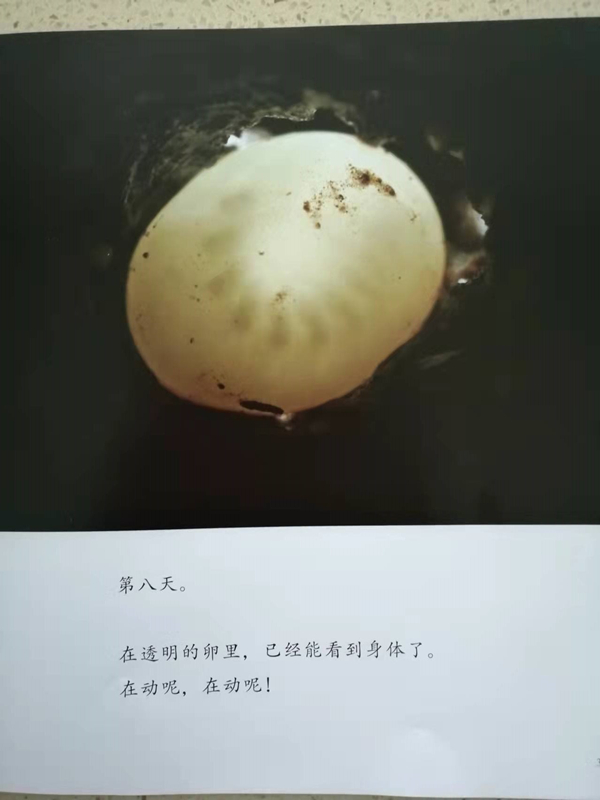 第八天。
在透明的卵里，已经能看到身体了。
在动呢，在动呢！